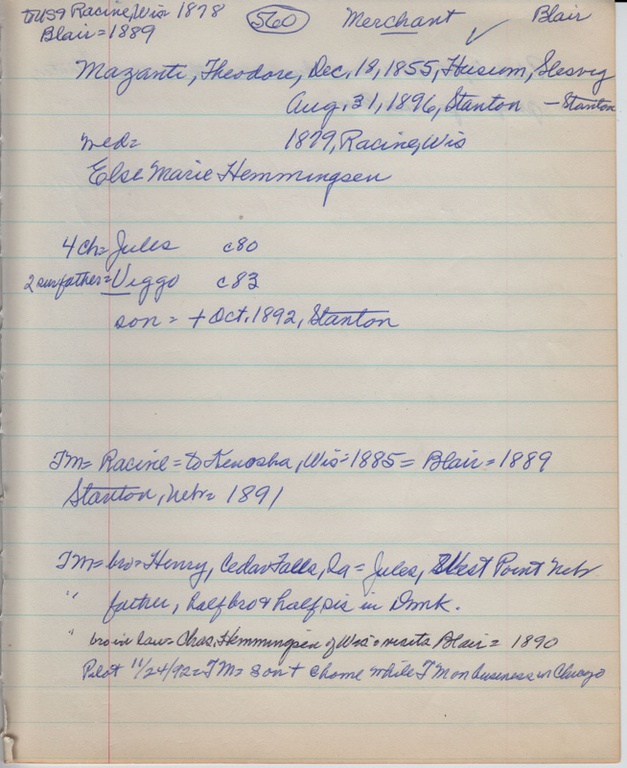 to US9 Racine, Wis 1878 560 Merchant Blair
Blair = 1889
Mazanti, Theodore, Dec. 18, 1855, Husum, Slesvig
Aug. 31, 1896, Stanton – Stanton
med= 1879, Racine, Wis
Else Marie Hemmingsen
4 ch = Jules c80
2 sur father = Viggo c83
son = + Oct. 1892, Stanton
TM = Racine = to Kenosha, Wis = 1885 = Blair = 1889
Stanton, Nebr = 1891
TM = bro = Henry, Cedar Falls, Ia = Jules, West Point Nebr
" father, half bro & half sis in Dmk.
" bro in law = Chas. Hemmingsen of Wis = visits Blair = 1890
Pilot 11/24/92 = TM = son + @ home while TM on business in Chicago